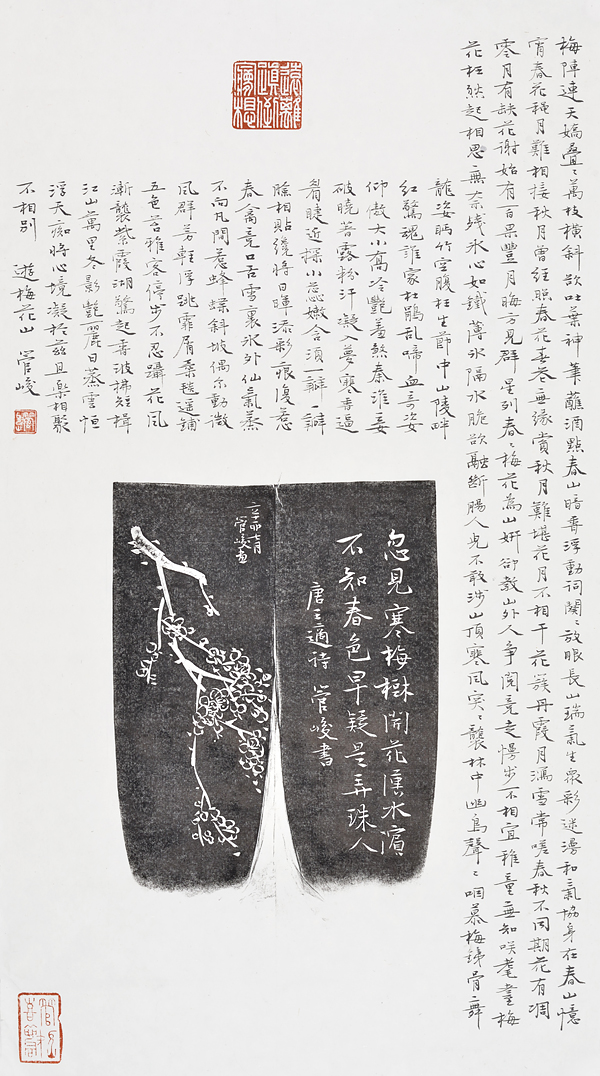 梅陣連天嬌疊疊萬枝橫斜欲吐葉神筆蘸酒點春山暗香浮動詞闋闋放眼長山瑞氣生眾彩迷漫和氣協身在春山憶
宵春花穠月難相接秋月曾經照春花無緣賞秋月難堪花月不相干花簇丹霞月滿雪常嗟春秋不同期花有凋
零月有缺花謝始有百果豐月晦方見群星列春春梅花為山妍卻教山外人爭閱竟走慢步不相宜稚童無知咲耄耋梅
花枉然起相思無奈殘冰心如鐵薄冰隔水脆欲融斷腸人兒不敢涉山頂寒風突突襲林中幽鳥聲聲咽慕梅銻骨舞
龍姿眄竹空腹枉生節中山陵畔
紅驚魂誰家杜鵑乱啼血奇姿
仰傲大小喬冷艷羞煞秦淮妾
破曉著露粉汗凝入夢寒香逼
看睫近探小蕊嫩含須一瓣一瓣
臉相貼纔將日暉添彩痕復惹
春禽竟口舌雪裏冰外仙氣蒸
不向凡間惹蜂蝶斜坡偶尔動微
風群芳輕浮跳霏屑柔毯遥鋪
五色苔稚客停步不忍躡花風
漸襲紫霞湖驚起香波拂短楫
江山萬里冬影艷麗日蒸雲恒
浮天痴將心境凝於茲且樂相聚
不相別 遊梅花山 管峻
忽見寒梅樹開花漢水濱
不知春色早疑是弄珠人
唐王適詩 管峻書
辛卯七月
管峻畫
遠離
顛倒
夢想